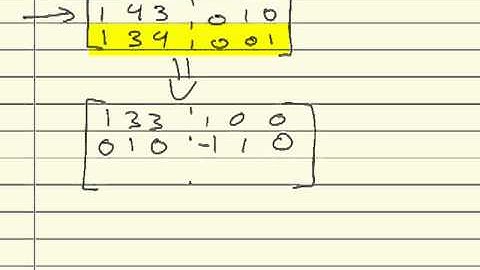 1 4 3 ¦ 0 1 0
1 3 4 ¦ 0 0 1
1 3 3 ¦ 1 0 0
0 1 0 ¦ -1 1 0